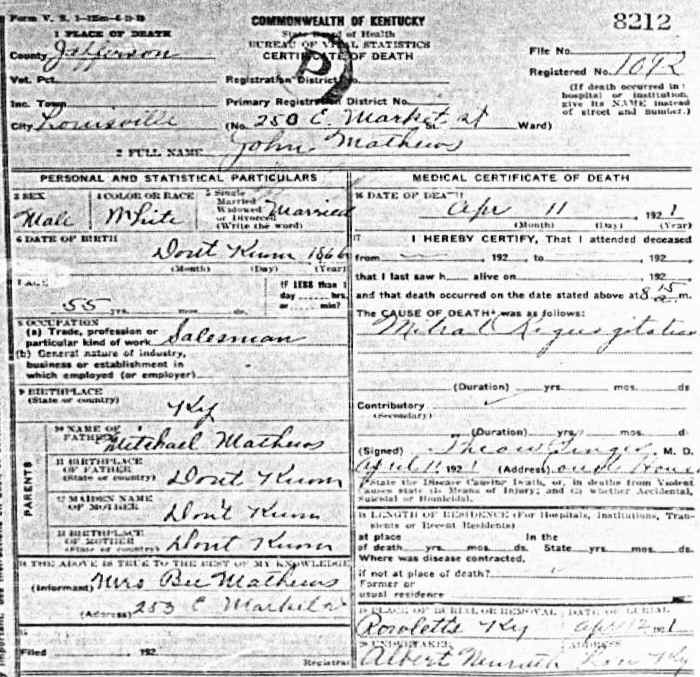 Form V. S. 1-125m-6-19-19
8212
COMMONWEALTH OF KENTUCKY
State Board of Health
BUREAU OF VITAL STATISTICS
CERTIFICATE OF DEATH
1 PLACE OF DEATH
County Jefferson
File No.
Vot. Pct.
Registration District No.
Registered No. 1092
Inc. Town
Primary Registration District No.
(If death occurred in a hospital or institution, give its NAME instead of street and number.)
City Louisville
(No. 250 E. Market St. Ward)
2 FULL NAME John Mathews
PERSONAL AND STATISTICAL PARTICULARS
3 SEX Male
4 COLOR OR RACE White
5 Single Married Widowed or Divorced (Write the word) Married
6 DATE OF BIRTH
Dont Know 1866
(Month) (Day) (Year)
7 AGE
55 yrs. mos. ds.
If LESS than 1 day hrs. or min?
8 OCCUPATION
(a) Trade, profession or particular kind of work Salesman
(b) General nature of industry, business or establishment in which employed (or employer)
9 BIRTHPLACE
(State or country) Ky
PARENTS
10 NAME OF FATHER Mitchael Mathews
11 BIRTHPLACE OF FATHER
(State or country) Dont Know
12 MAIDEN NAME OF MOTHER Don't Know
13 BIRTHPLACE OF MOTHER
(State or country) Dont Know
14 THE ABOVE IS TRUE TO THE BEST OF MY KNOWLEDGE
(Informant) Mrs Bee Mathews
(Address) 253 E Market st
15
Filed 192
Registrar
MEDICAL CERTIFICATE OF DEATH
16 DATE OF DEATH
Apr 11 1921
(Month) (Day) (Year)
17 I HEREBY CERTIFY, That I attended deceased
from 192 to 192
that I last saw h alive on 192
and that death occurred on the date stated above at 8 15 a m.
The CAUSE OF DEATH* was as follows:
Mitral Regurgitation
(Duration) yrs. mos. ds.
Contributory
(Secondary)
(Duration) yrs. mos. ds.
(Signed) M. D.
April 11 1921 (Address)
*State the Disease Causing Death, or, in deaths from Violent Causes state (1) Means of Injury; and (2) whether Accidental, Suicidal or Homicidal.
18 LENGTH OF RESIDENCE (For Hospitals, Institutions, Transients or Recent Residents)
at place of death yrs. mos. ds. In the State yrs. mos. ds.
Where was disease contracted,
if not at place of death?
Former or
usual residence
19 PLACE OF BURIAL OR REMOVAL DATE OF BURIAL
Rowletts Ky Apr 12 1921
20 UNDERTAKER ADDRESS
Albert Ky